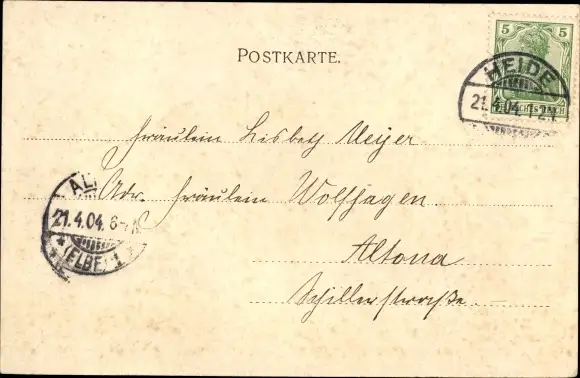 5 5
POSTKARTE.
HEIDE
21.4.04.1-2N
Fräulein Lisbeth Meyer
AL
Adr. Fräulein Wolfhagen
21.4.04. 6-7N
(ELBE) 1
Altona
Schillerstrasse.